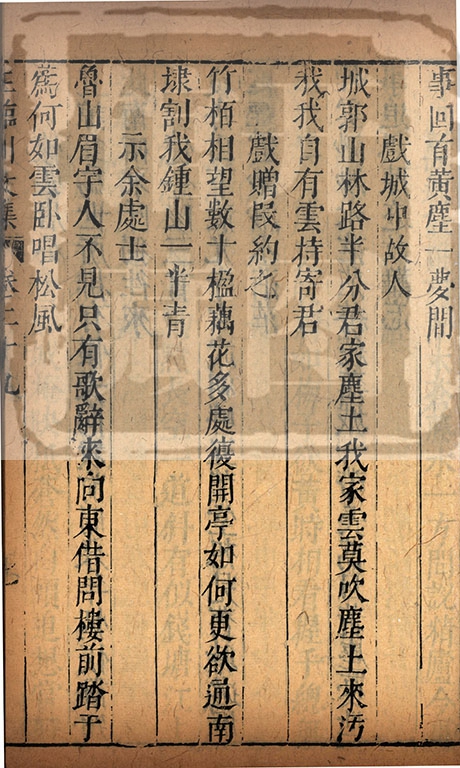 事回首黃塵一夢間
戲城中故人
城郭山林路半分君家塵土我家雲莫吹塵土來汚
我我自有雲持寄君
戲贈叚約之
竹栢相望數十楹藕花多處復開亭如何更欲通南
埭割我鍾山一半青
示余處士
魯山眉宇人不見只有歌辭來向東借問樓前踏于
蔿何如雲卧唱松風
王臨川文集 卷二十九